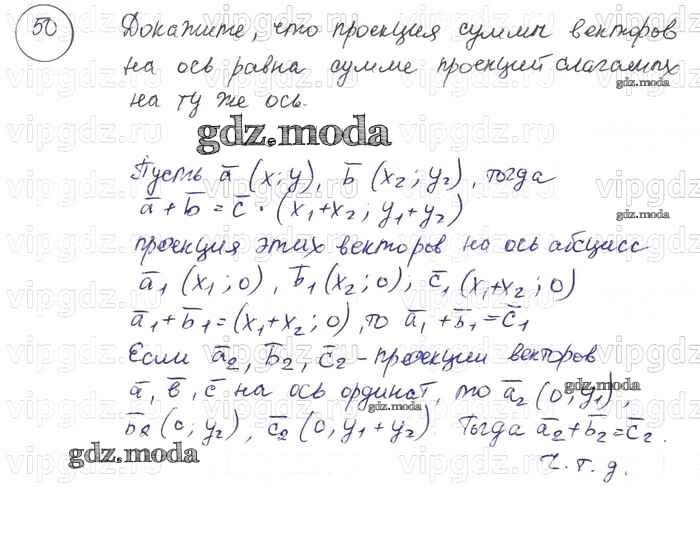 50
Докажите, что проекция суммы векторов
на ось равна сумме проекций слагаемых
на ту же ось.
gdz.moda
Пусть a̅ (x; y), b̅ (x₂; y₂), тогда
a̅ + b̅ = c̅ · (x₁+x₂; y₁+y₂)
проекция этих векторов на ось абсцисс
a̅₁ (x₁; 0), b̅₁ (x₂; 0), c̅₁ (x₁+x₂; 0)
a̅₁ + b̅₁ = (x₁+x₂; 0), то a̅₁ + b̅₁ = c̅₁
Если a̅₂, b̅₂, c̅₂ - проекции векторов
a̅, b̅, c̅ на ось ординат, то a̅₂ (0; y₁),
b̅₂ (0; y₂), c̅₂ (0, y₁+y₂). Тогда a̅₂ + b̅₂ = c̅₂.
ч.т.д.
gdz.moda